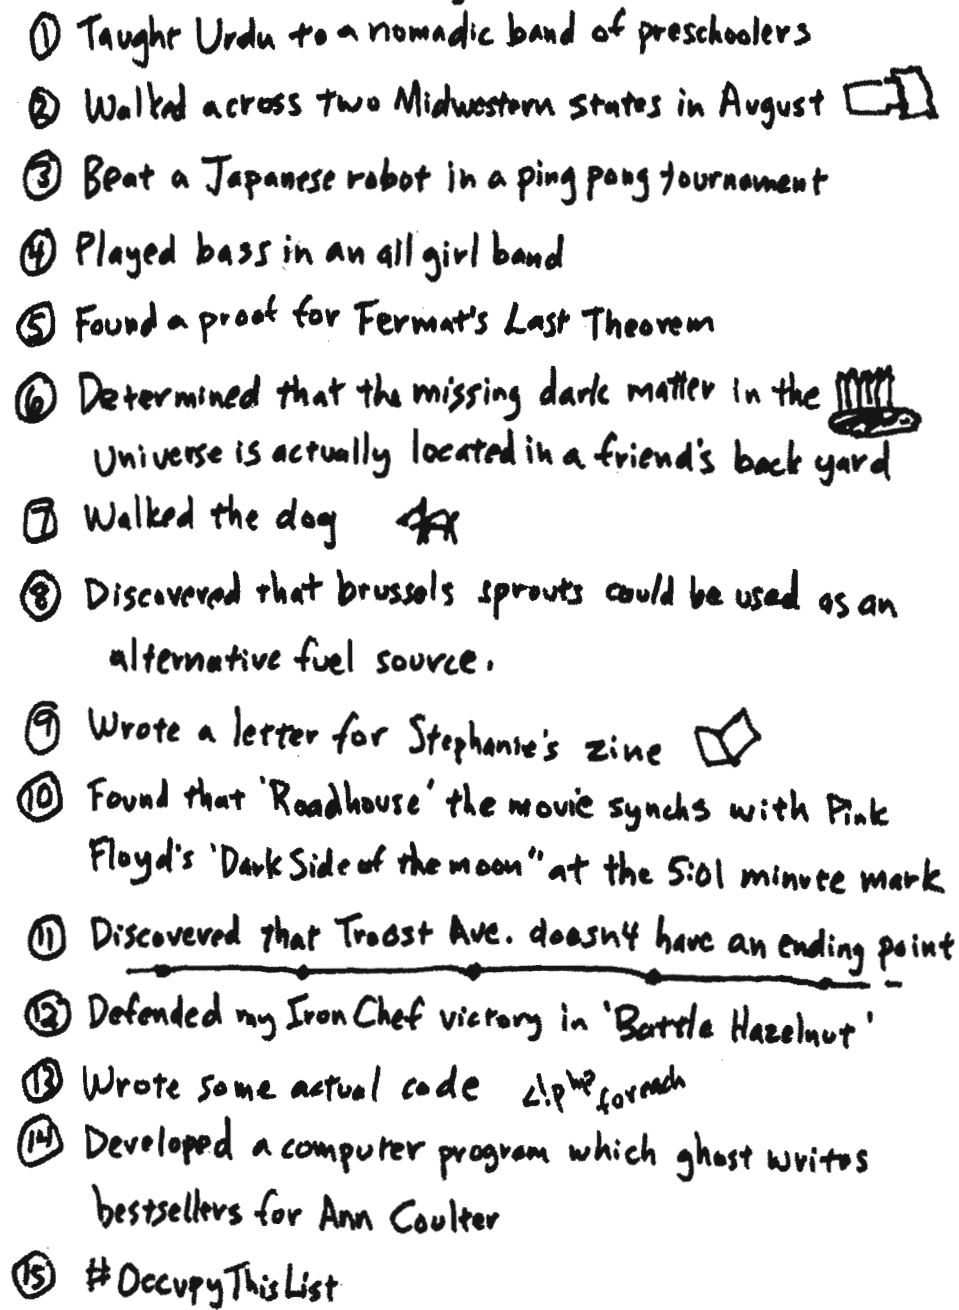 ① Taught Urdu to a nomadic band of preschoolers
② Walked across two Midwestern states in August
③ Beat a Japanese robot in a ping pong tournament
④ Played bass in an all girl band
⑤ Found a proof for Fermat's Last Theorem
⑥ Determined that the missing dark matter in the
Universe is actually located in a friend's back yard
⑦ Walked the dog
⑧ Discovered that brussels sprouts could be used as an
alternative fuel source.
⑨ Wrote a letter for Stephanie's zine
⑩ Found that 'Roadhouse' the movie synchs with Pink
Floyd's 'Dark Side of the moon" at the 5:01 minute mark
⑪ Discovered that Troost Ave. doesn't have an ending point
⑫ Defended my Iron Chef victory in 'Battle Hazelnut'
⑬ Wrote some actual code <!php foreach
⑭ Developed a computer program which ghost writes
bestsellers for Ann Coulter
⑮ #OccupyThisList